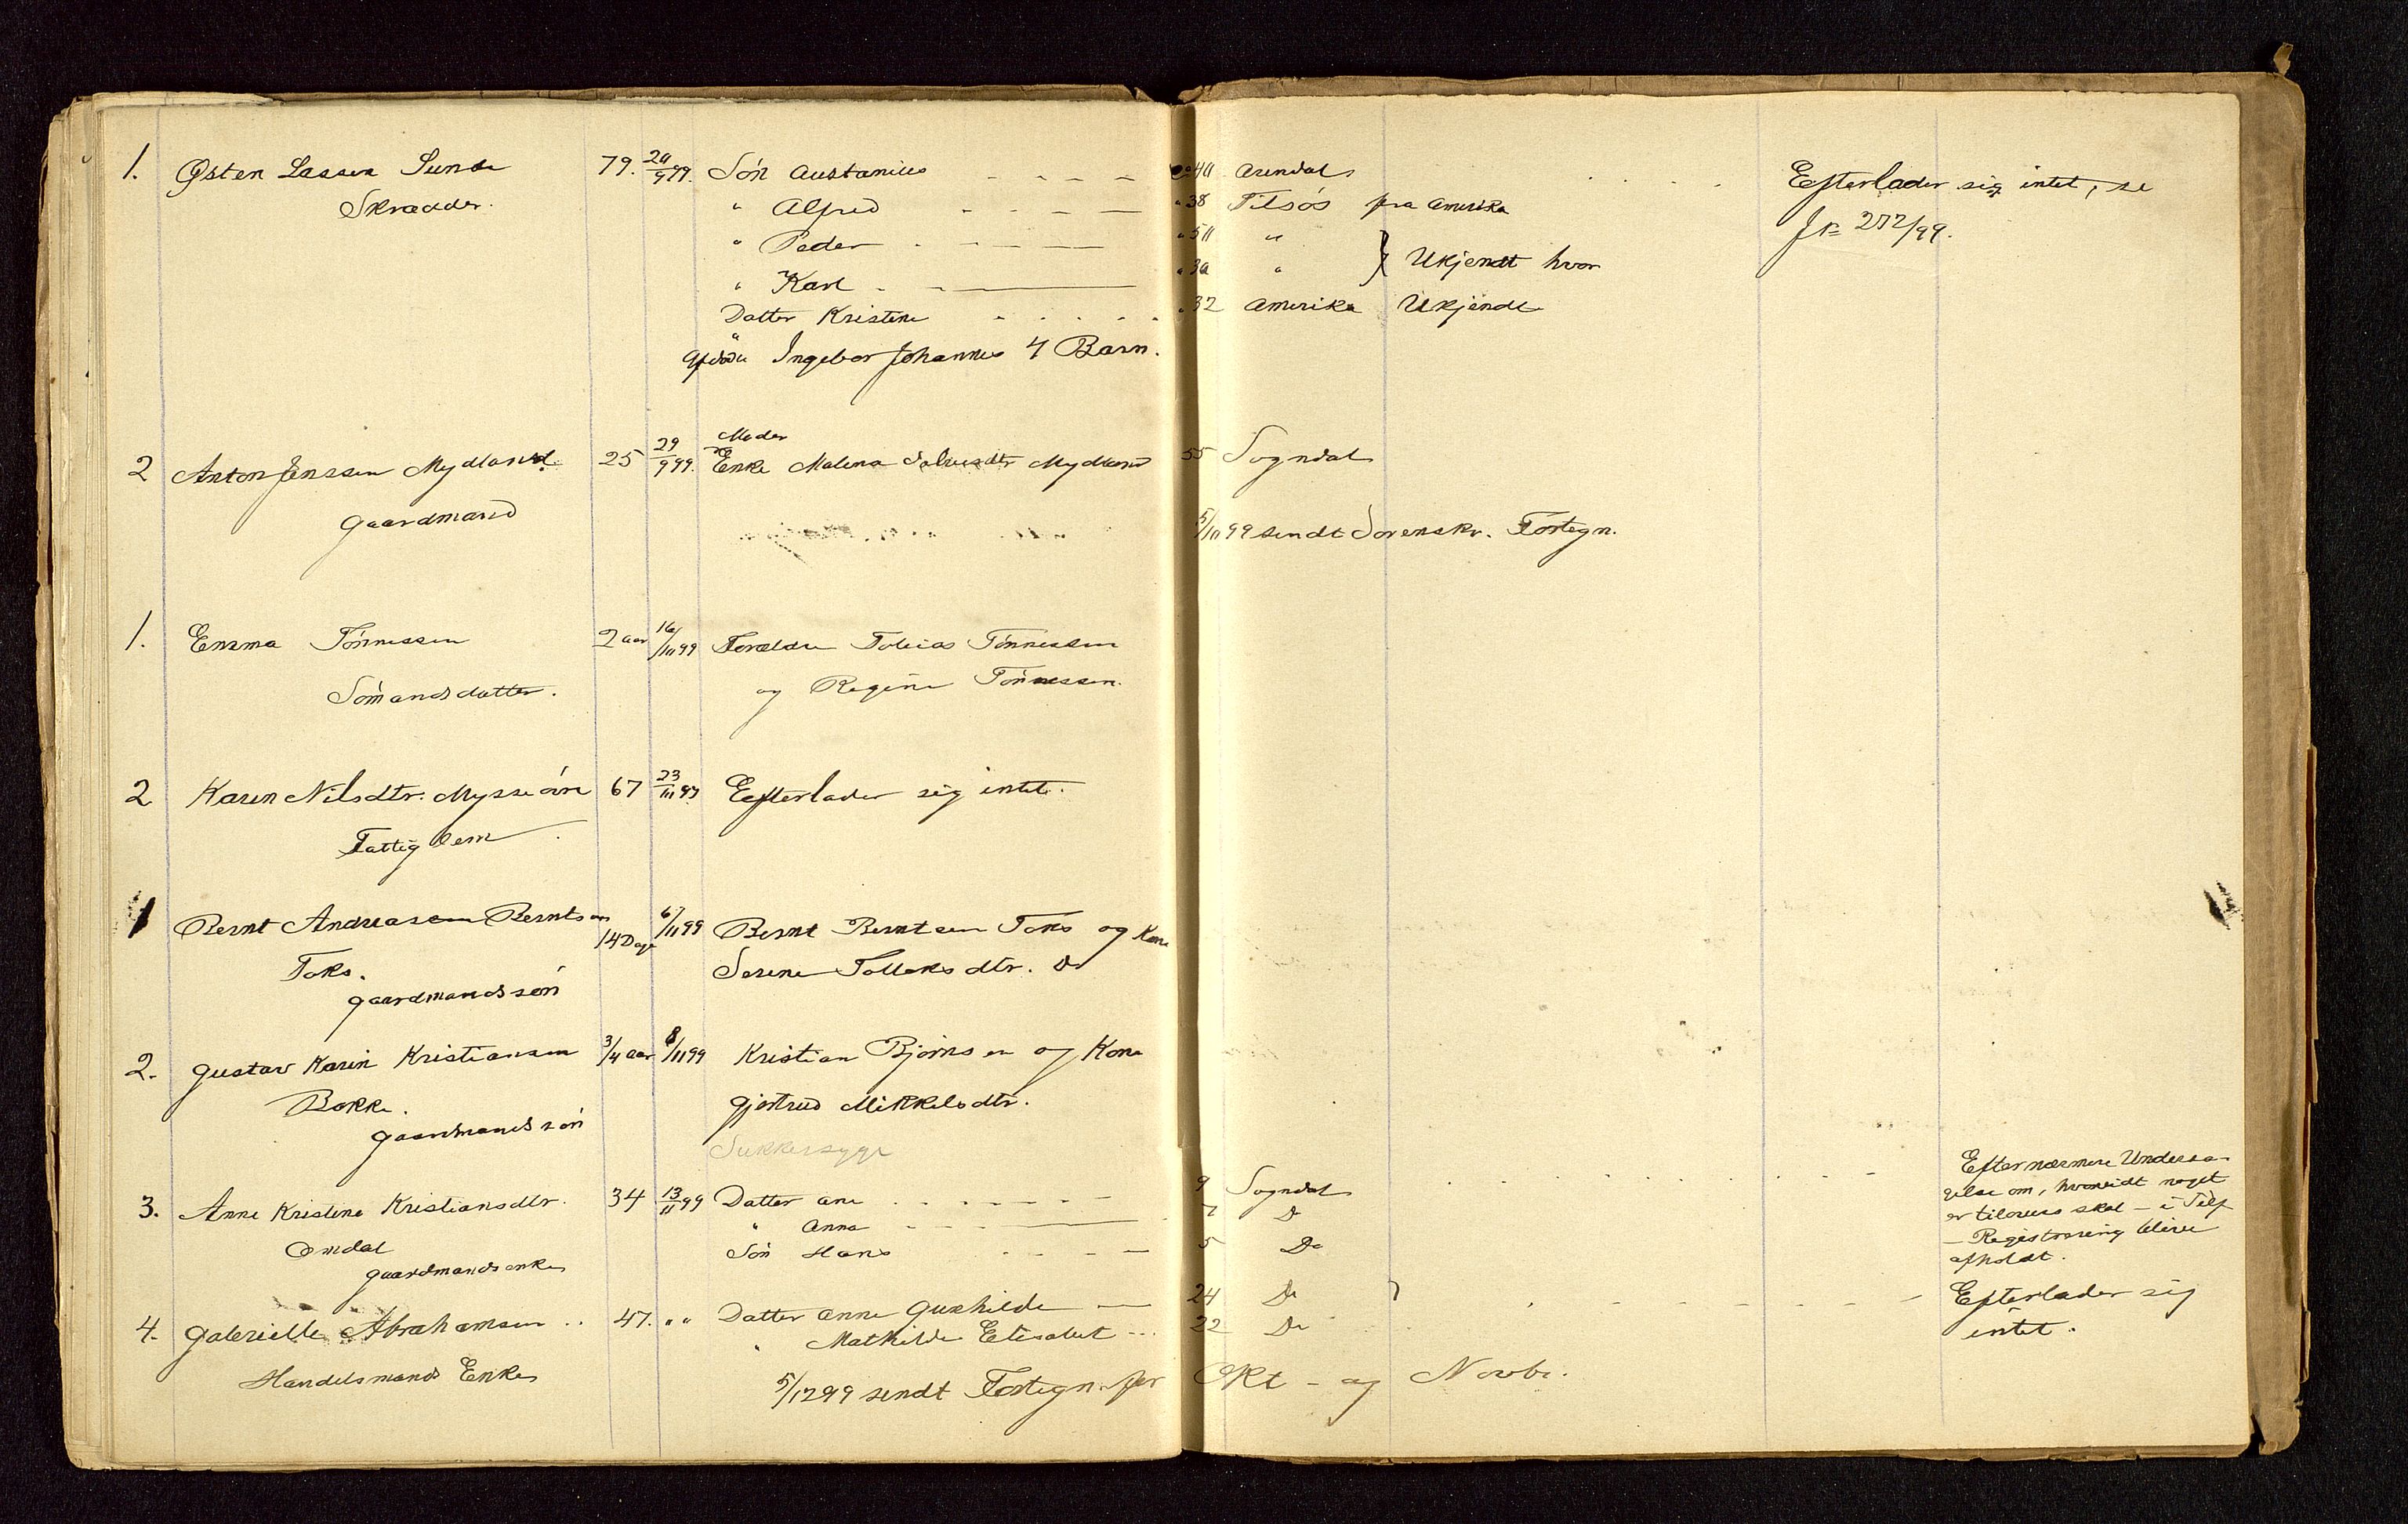 1. Østen Lassen Sunde 79. 29/9 99. Søn Austanius 40 Arendal Efterlader sig intet, se
Skrædder. " Alfred " 38 Tilsøs fra Amerika J № 272/99.
" Peder " 50 "
" Karl " 30 " } Ukjendt hvor
Datter Kristine " 32 Amerika Ukjendt
Ingebor Johannes 4 Barn.
Moder
2 Anton Jenssen Mydland 25 29/9 99. Enke Malena Salvesdtr Mydland 55 Sogndal
Gaardmand 5/10 99 sendt Sorenskr. Fortegn.
1. Emma Tönnessen 2 aar 16/10 99 Forældre Tobias Tönnessen
Sömandsdatter. og Regine Tönnessen.
2 Karen Nilsdtr. Mysseöre 67 23/10 99 Efterlader sig intet.
Fattiglem
1 Bernt Andreas Berntsen 14 Dage 6/11 99 Bernt Berntsen Toks og Kone
Toks. Serine Tolleksdtr. Do
gaardmandssön
2. Gustav Karin Kristiansen 3/4 aar 8/11 99 Kristian Björnsen og Kone
Bakke. Gjertrud Mikkelsdtr.
gaardmandssön
Sukkersyge
3. Anne Kristine Kristiansdtr. 34 13/11 99 Datter Ane 9 Sogndal Efter nærmere Undersø-
" Anna 7 Do gelse om, hvorvidt noget
Omdal Sön Hans 5 Do er tilovers skal – i Tilf
gaardmandsenke – Registrering blive
afholdt.
4. Gabrielle Abrahamsen 47. " " Datter Anne Gunhilde 24 Do Efterlader sig
" Mathilde Elisabet 22 Do intet.
Handelsmands Enke 5/12 99 sendt Fortegn. for Okt – og Novbr.